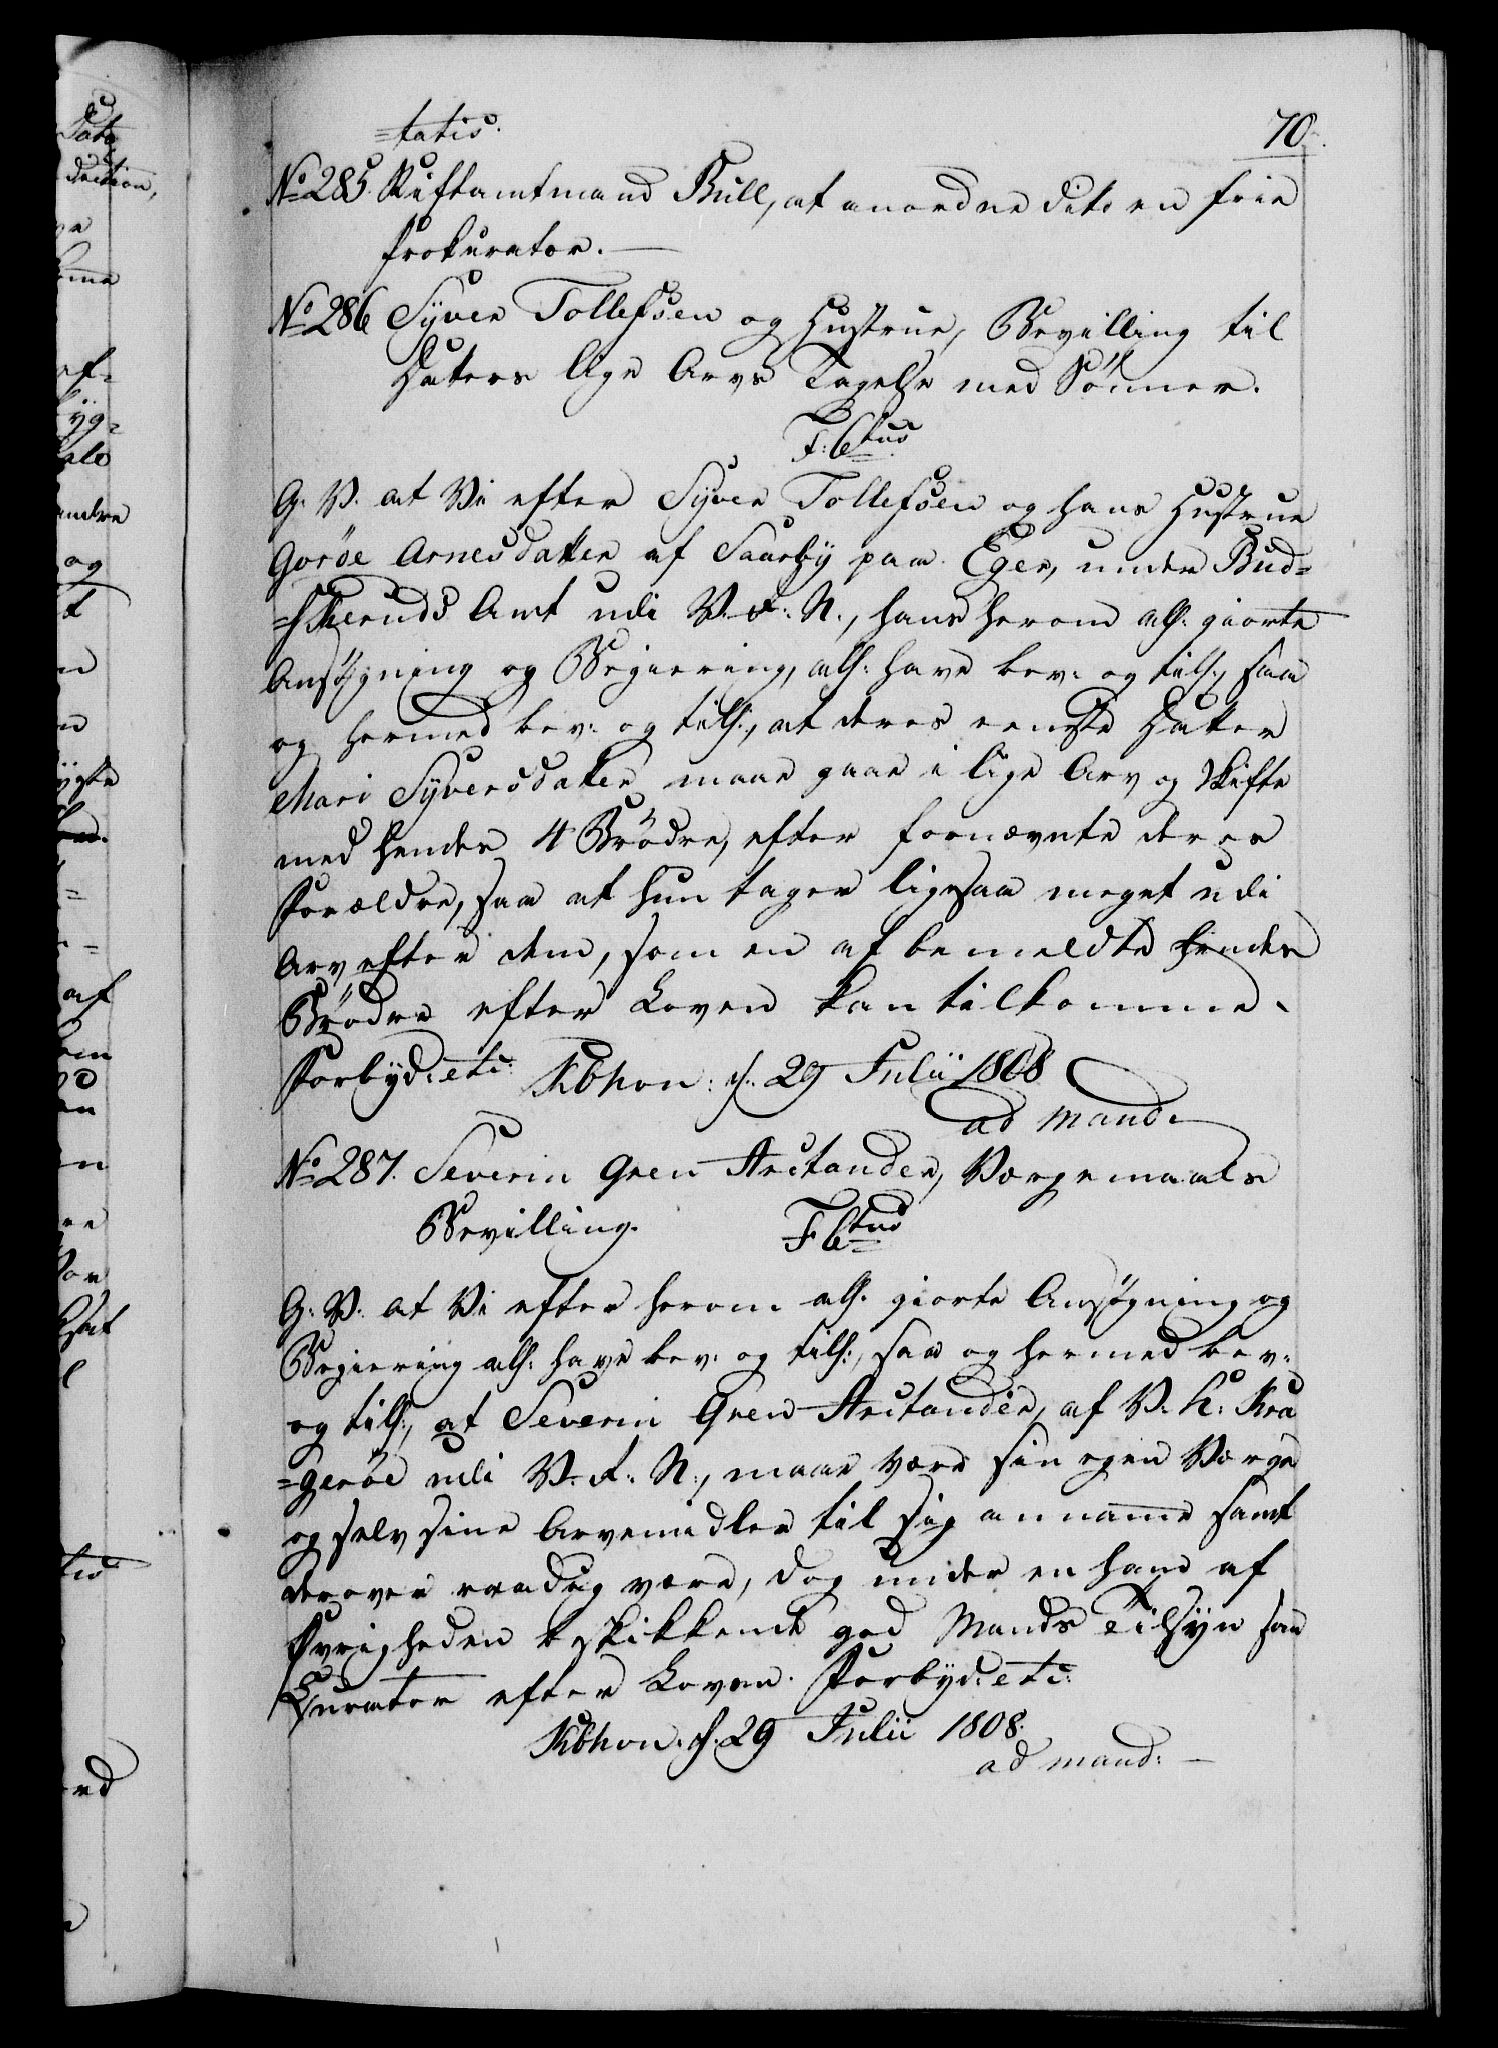 70.
=tatis.
No 285. Stiftamtmand Bull, at anordne dito en frie
Prokurator.
No 286 Syver Tollefsen og Hustrue, Bevilling til
Datters lige Arvs Tagelse med Sönner.
F: 6tus
G. V. at Vi efter Syver Tollefsen og hans Hustrue
Goröe Arnesdatter af Saasby paa Eger, under Bud=
=skeruds Amt udi V. R: N., hans herom all: giorte
Ansögning og Begiering, all: have bev: og till:, saa
og hermed bev: og till:, at deres eeneste Datter
Mari Syversdatter maae gaae i lige Arv og Skifte
med hendes 4 Brödre, efter fornævnte deres
Forældre, saa at hun tager ligesaa meget udi
Arv efter dem, som en af bemeldte hendes
Brödre efter Loven kan tilkomme.
Forbyd: etc: Kbhvn: d. 29 Julii 1808
ad mand:
No 287. Severin Gren Arctander, Værgemaals
Bevilling.
F 6tus
G. V. at Vi efter herom all. giorte Ansögning og
Begiering all: have bev: og till:, saa og hermed bev:
og till:, at Severin Gren Arctander, af V. K: Kra
=geröe udi V. R: N:, maae være sin egen Værge
og selv sine Arvemidler til sig annamme samt
derover raadig være, dog under en ham af
Øvrigheden beskikkende god Mands Tilsyn som
Curator efter Loven. Forbyd: etc:
Kbhvn. d. 29 Julii 1808.
ad mand: